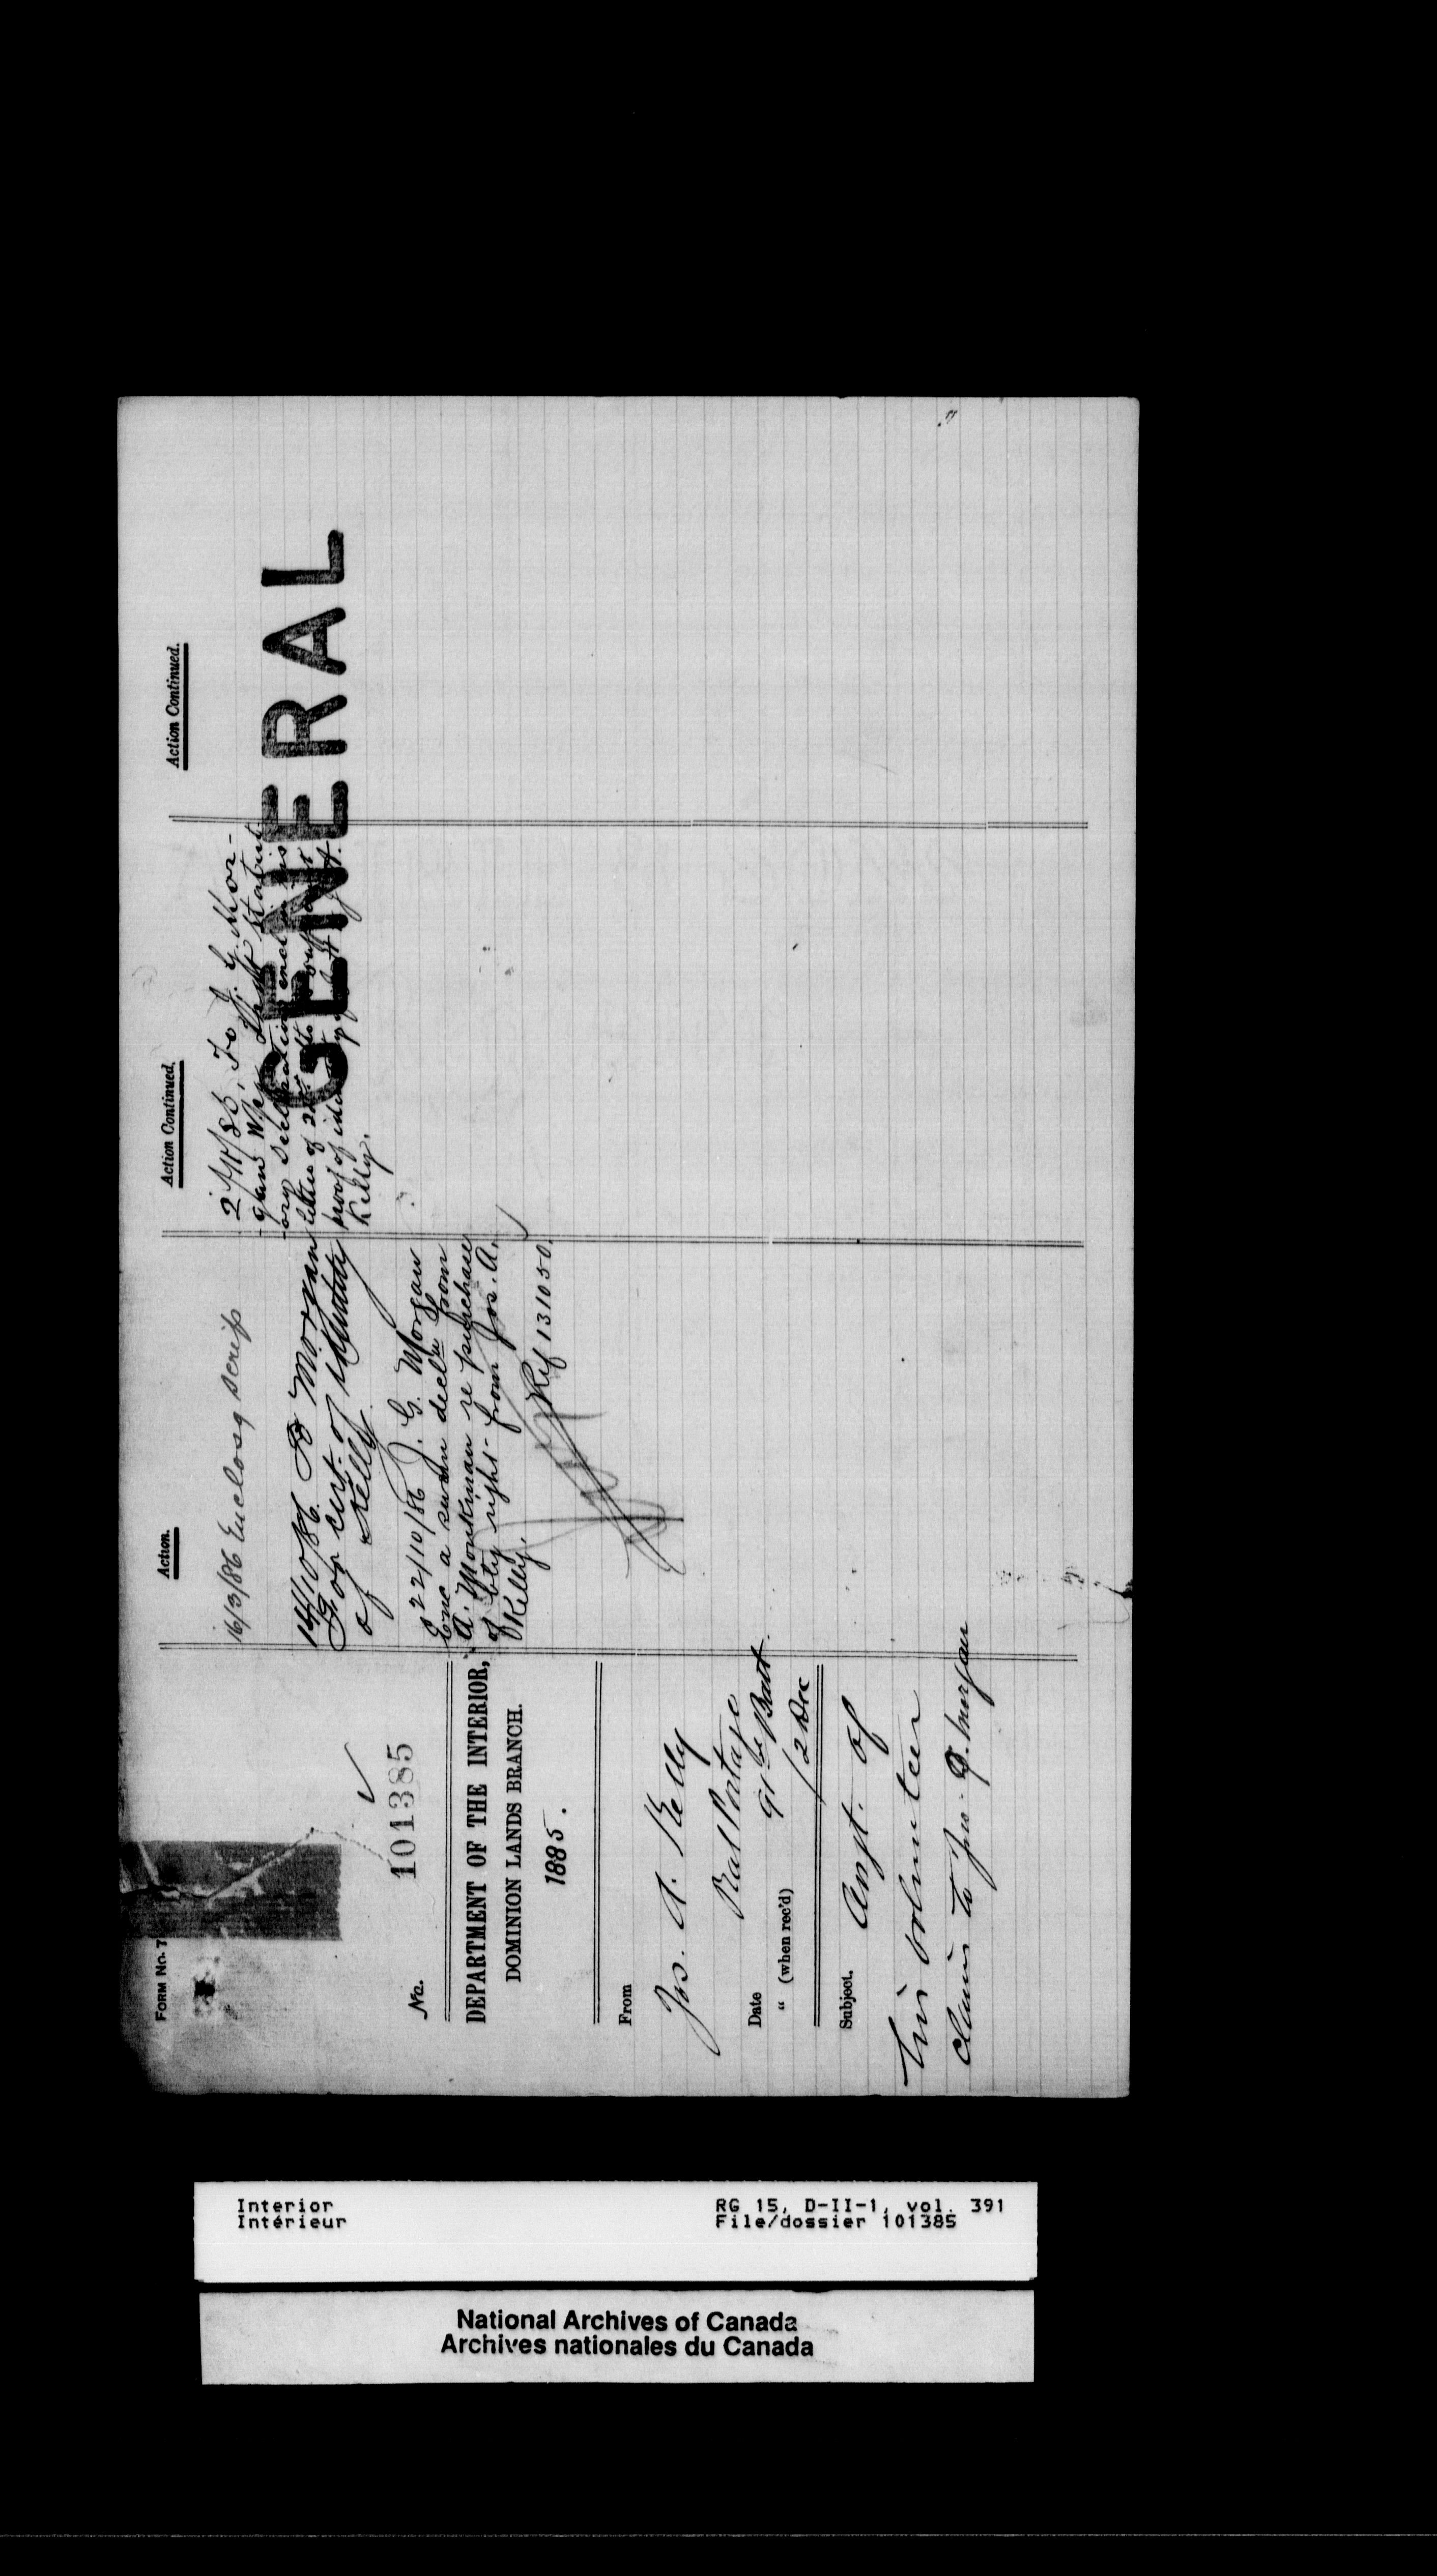 FORM No. 7
No. 101385
DEPARTMENT OF THE INTERIOR,
DOMINION LANDS BRANCH.
1885.
From
Jos. A. Kelly
Rat Portage
Date 91st Batt
" (when rec'd) 12 Dec
Subject. Asgt. of
his volunteer
claim to Jno. G. Morgan
Action.
16/3/86 Enclosg scrip
14/10/86. To Morgan
for cert. of identity
of Kelly.
22/10/86 J. G. Morgan
Enc a sworn decln from
A. Monkman re purchase
of bty right from Jos. A.
Kelly.
Ref 131050.
Action Continued.
To J. G. Mor-
-gan Wpg that statut
-ory declaration encl in his
letter of
proof of
Kelly.
GENERAL
Action Continued.
Interior
Intérieur
RG 15, D-II-1, vol. 391
File/dossier 101385
National Archives of Canada
Archives nationales du Canada